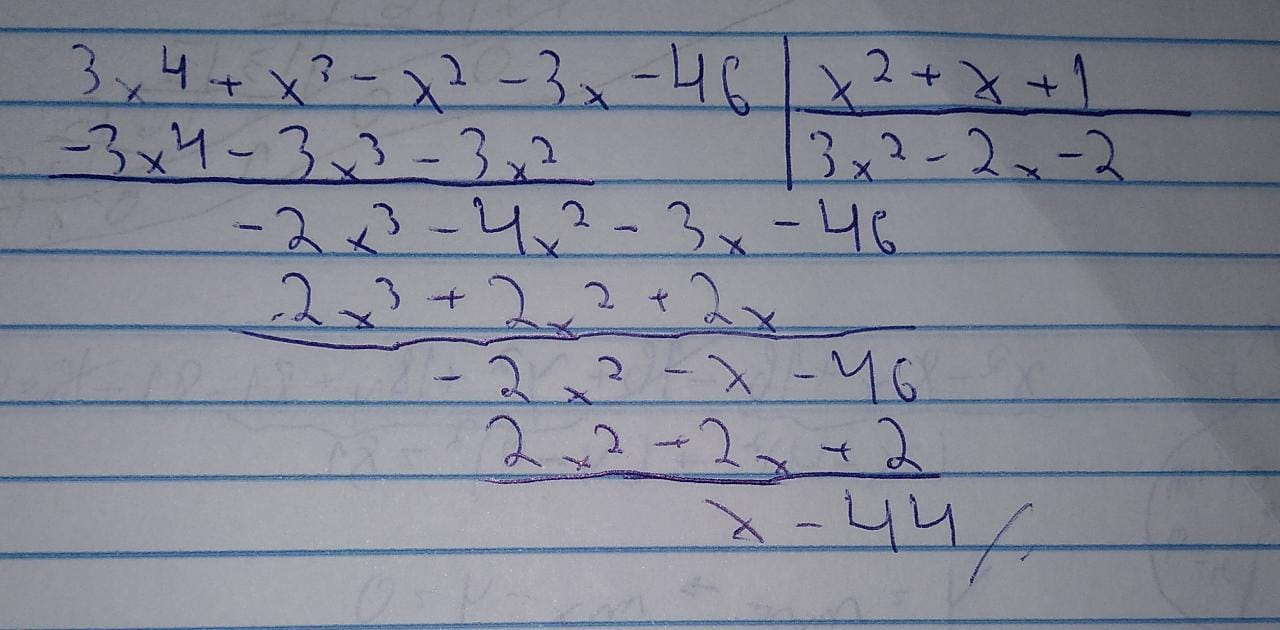 3x⁴ + x³ - x² - 3x - 46 | x² + x + 1
-3x⁴ - 3x³ - 3x² | 3x² - 2x - 2
-2x³ - 4x² - 3x - 46
2x³ + 2x² + 2x
-2x² - x - 46
2x² + 2x + 2
x - 44 //.